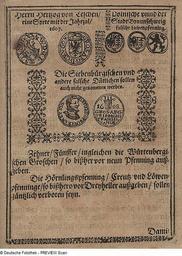 Herrn Hertzog von Teschen/
eine Sorte mit der Jahrzal/
1607.
Polnische vnnd der
Stadt Braunschweig
falsche Silberpfenning.
Die Siebenbürgischen vnd
andere falsche Dütichen sollen
auch nicht genommen werden.
Zehner/ Fünffer/ ingleichen die Würtenbergi-
schen Groschen/ so bißher vor neun Pfenning auß-
geben.
Die Hörnlingspfenning/ Creutz vnd Löwen-
pfenninge/ so bißher vor Dreyheller außgeben/ sollen
gäntzlich verboten seyn.
Dami
© Deutsche Fotothek - PREVIEW Scan